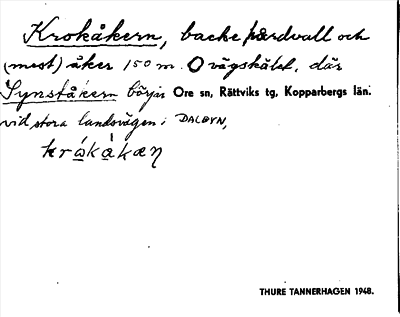 Krokåkern, backe hårdvall och
(mest) åker 150 m. O vägskälet, där
Synståkern börjar Ore sn, Rättviks tg, Kopparbergs län.
vid stora landsvägen i DALBYN,
THURE TANNERHAGEN 1948.